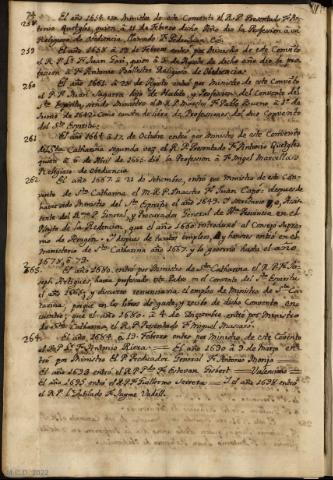 El año 1656. era Ministro de este Convento el R.P. Presentado Fr. An-
tonio Quetglas, quien à 11 de Febrero dicho Año dio la Profesion à un
Religioso de Obediencia, llamado Fr. Pedro Juan
259 El año 1658. à 12 de Febrero entrò por Ministro de este Convento
el R.P. Fr. Juan Torri, quien à 5 de Agosto de dicho año dio la pro-
fesion à Fr. Antonio Ballester Religioso de Obediencia.
260 El año 1661. à 23 de Agosto entrò por Ministro de este Convento
el P. Fr. Juan Superna hijo de Habito, y Profesion del Convento del
Sto. Espiritu, siendo Ministro el M.R.P. Director Fr. Pablo Bueno à 1º de
Junio de 1642. Como consta de libro de Profesiones del dho Convento
del Sto. Espiritu.
261 El año 1664. à 17. de Octubre entrò por Ministro de este Convento
de Sta. Catharina segunda vez el R.P. Presentado Fr. Antonio Quetglas,
quien à 6 de Abril de 1665. dio la Profesion à Fr. Angel
Religioso de Obediencia.
262 El año 1667. à 21 de Setiembre, entrò por Ministro de este Con-
vento de Sta. Catharina el M.R.P. Maestro Fr. Juan Capò: despues de
haver sido Ministro del Sto. Espiritu el año 1649. Secretario y Assis-
tente del Rmo. P. General, y Procurador General de Nra. Provincia en el
Pleyto de la Redencion, que el año 1660. introduxo al Consejo Supre-
mo de Aragon. Y despues de tantos empleos, y honores entrò en el
Ministerio de Sta. Catharina año 1667. y lo governò hasta el año
1673, &.
263 El año 1680. entrò por Ministro de Sta. Catharina el R.P. Fr. Jo-
seph Artigues; havia profesado este Padre en el Convento del Sto. Espiritu
el año
tarina; porque en los libros de gasto, y recibo de dicho Convento en-
cuentro, que el año 1680. à 4 de Diciembre entrò por Ministro
de Sta. Catharina, el R.P. Presentado Fr. Miguel Massanet.
264 El año 1684. à 13. Febrero entrò por Ministro de este Convento
el R.P. Fr. Antonio Riera. — El año 1690 à 9 de Marzo en-
trò por Ministro El P. Predicador General Fr. Antonio Monjo
El año 1693. entrò el R.P. Fr. Estevan Gisbert — Valenciano —
El año 1695 entrò el R.P. Fr. Guillermo Serrera — Y el año 1698 entrò
el R.P. Jubilado Fr. Jayme Vadell.
M.C.D. 2022